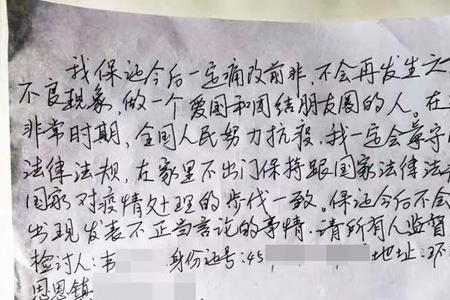 我保证今后一定痛改前非,不会再发生
不良现象,做一个爱国和团结朋友圈的人。在
非常时期,全国人民努力抗疫,我一定会遵守
法律法规,在家里不出门保持跟国家法律法
国家对疫情处理的步伐一致。保证今后不会
出现发表不正当言论的事情。请所有人监督
检讨人:韦 身份证号:45 地址:环
思恩镇